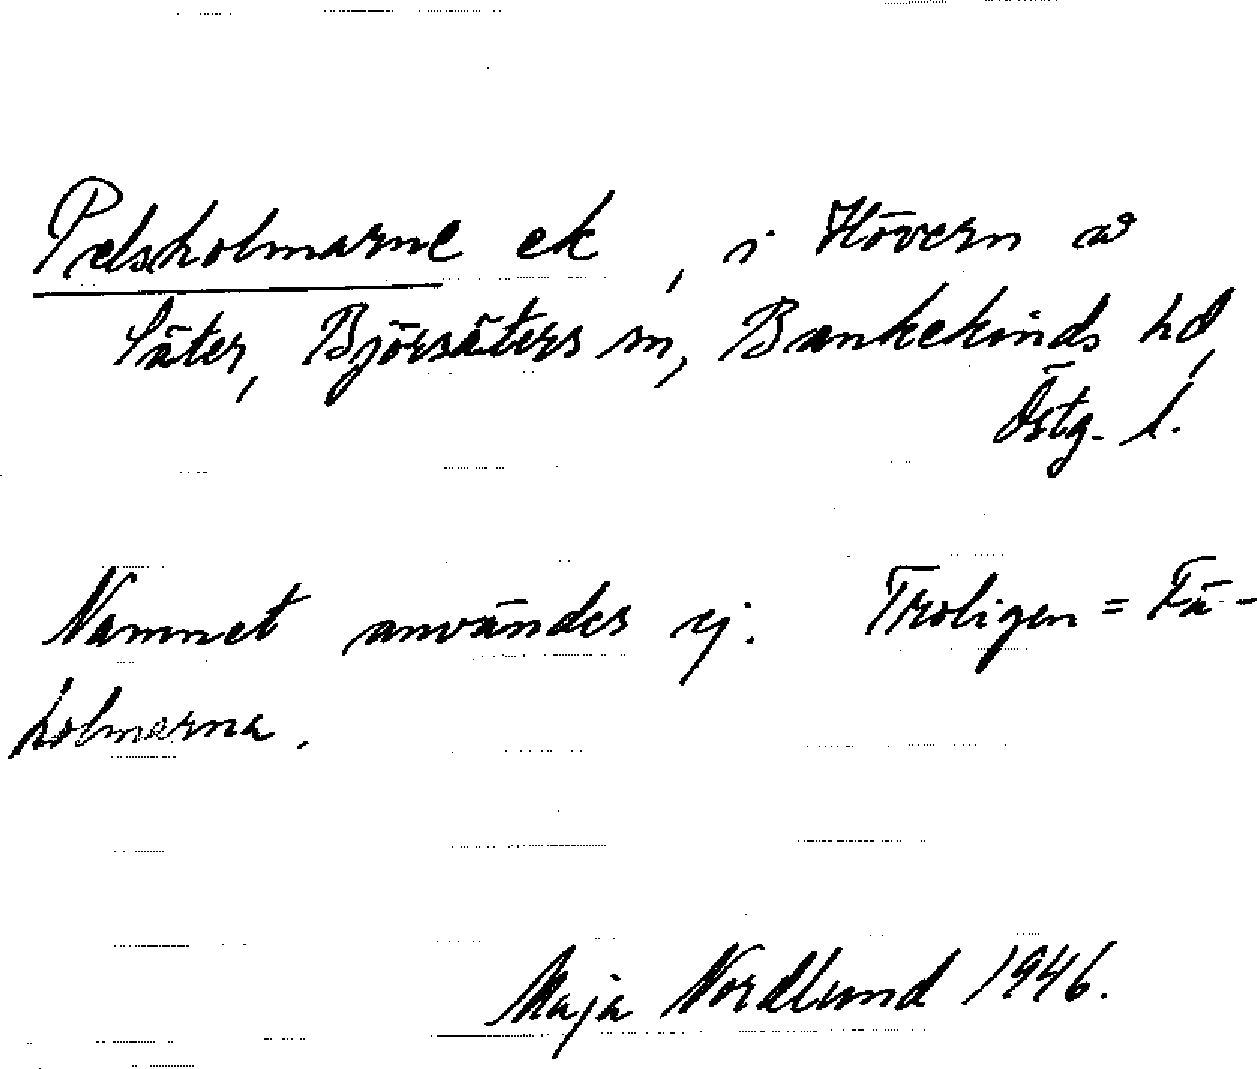 Pelsholmarne ek, i Hövern av
Säter, Björsäters sn, Bankekinds hd,
Östg. l.
Namnet användes ej. Troligen = Få-
holmarna.
Maja Nordlund 1946.